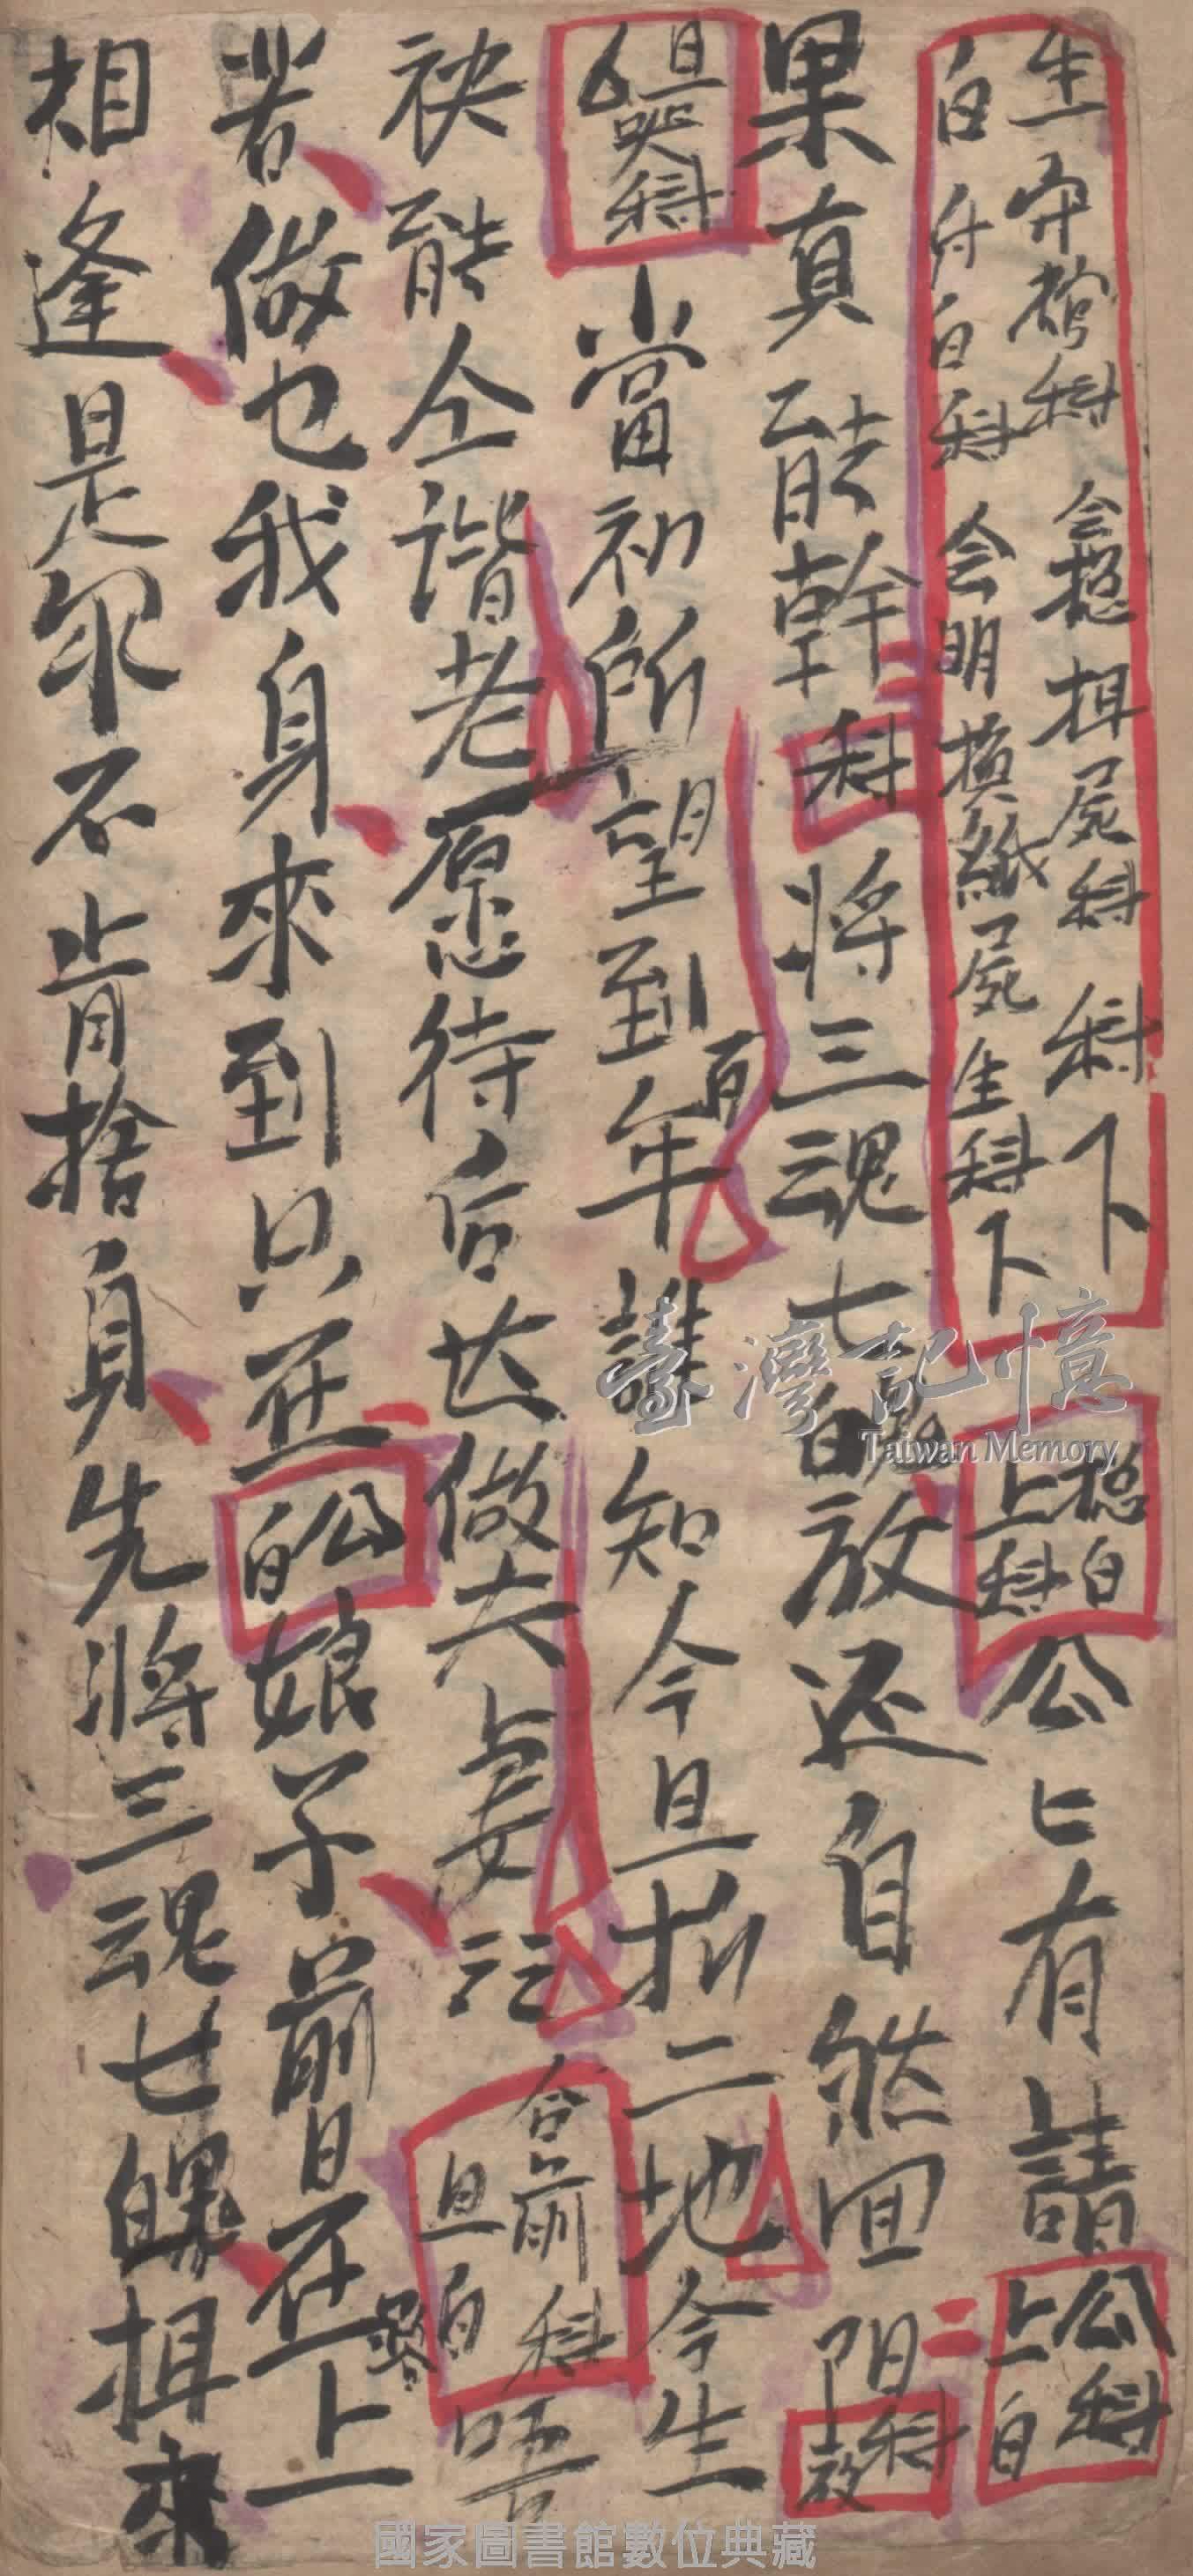 生守棺科 会揔揖屍科 科下
白 付白科 会明換紙屍 生科下
揔白
上科
公匕有請
公科
上白
果真能幹科將三魂七魄放还自然回陽
科
放
旦哭科
當初所望到百年誰知今旦折二地今生
袂能仝諧老愿待后世做夫妻
合前科
旦白
唔
若做乜我身來到只在
公白
娘子前日在上路
相逢是尔不肯捨身先將三魂七魄揖來
臺灣記憶
Taiwan Memory
國家圖書館數位典藏